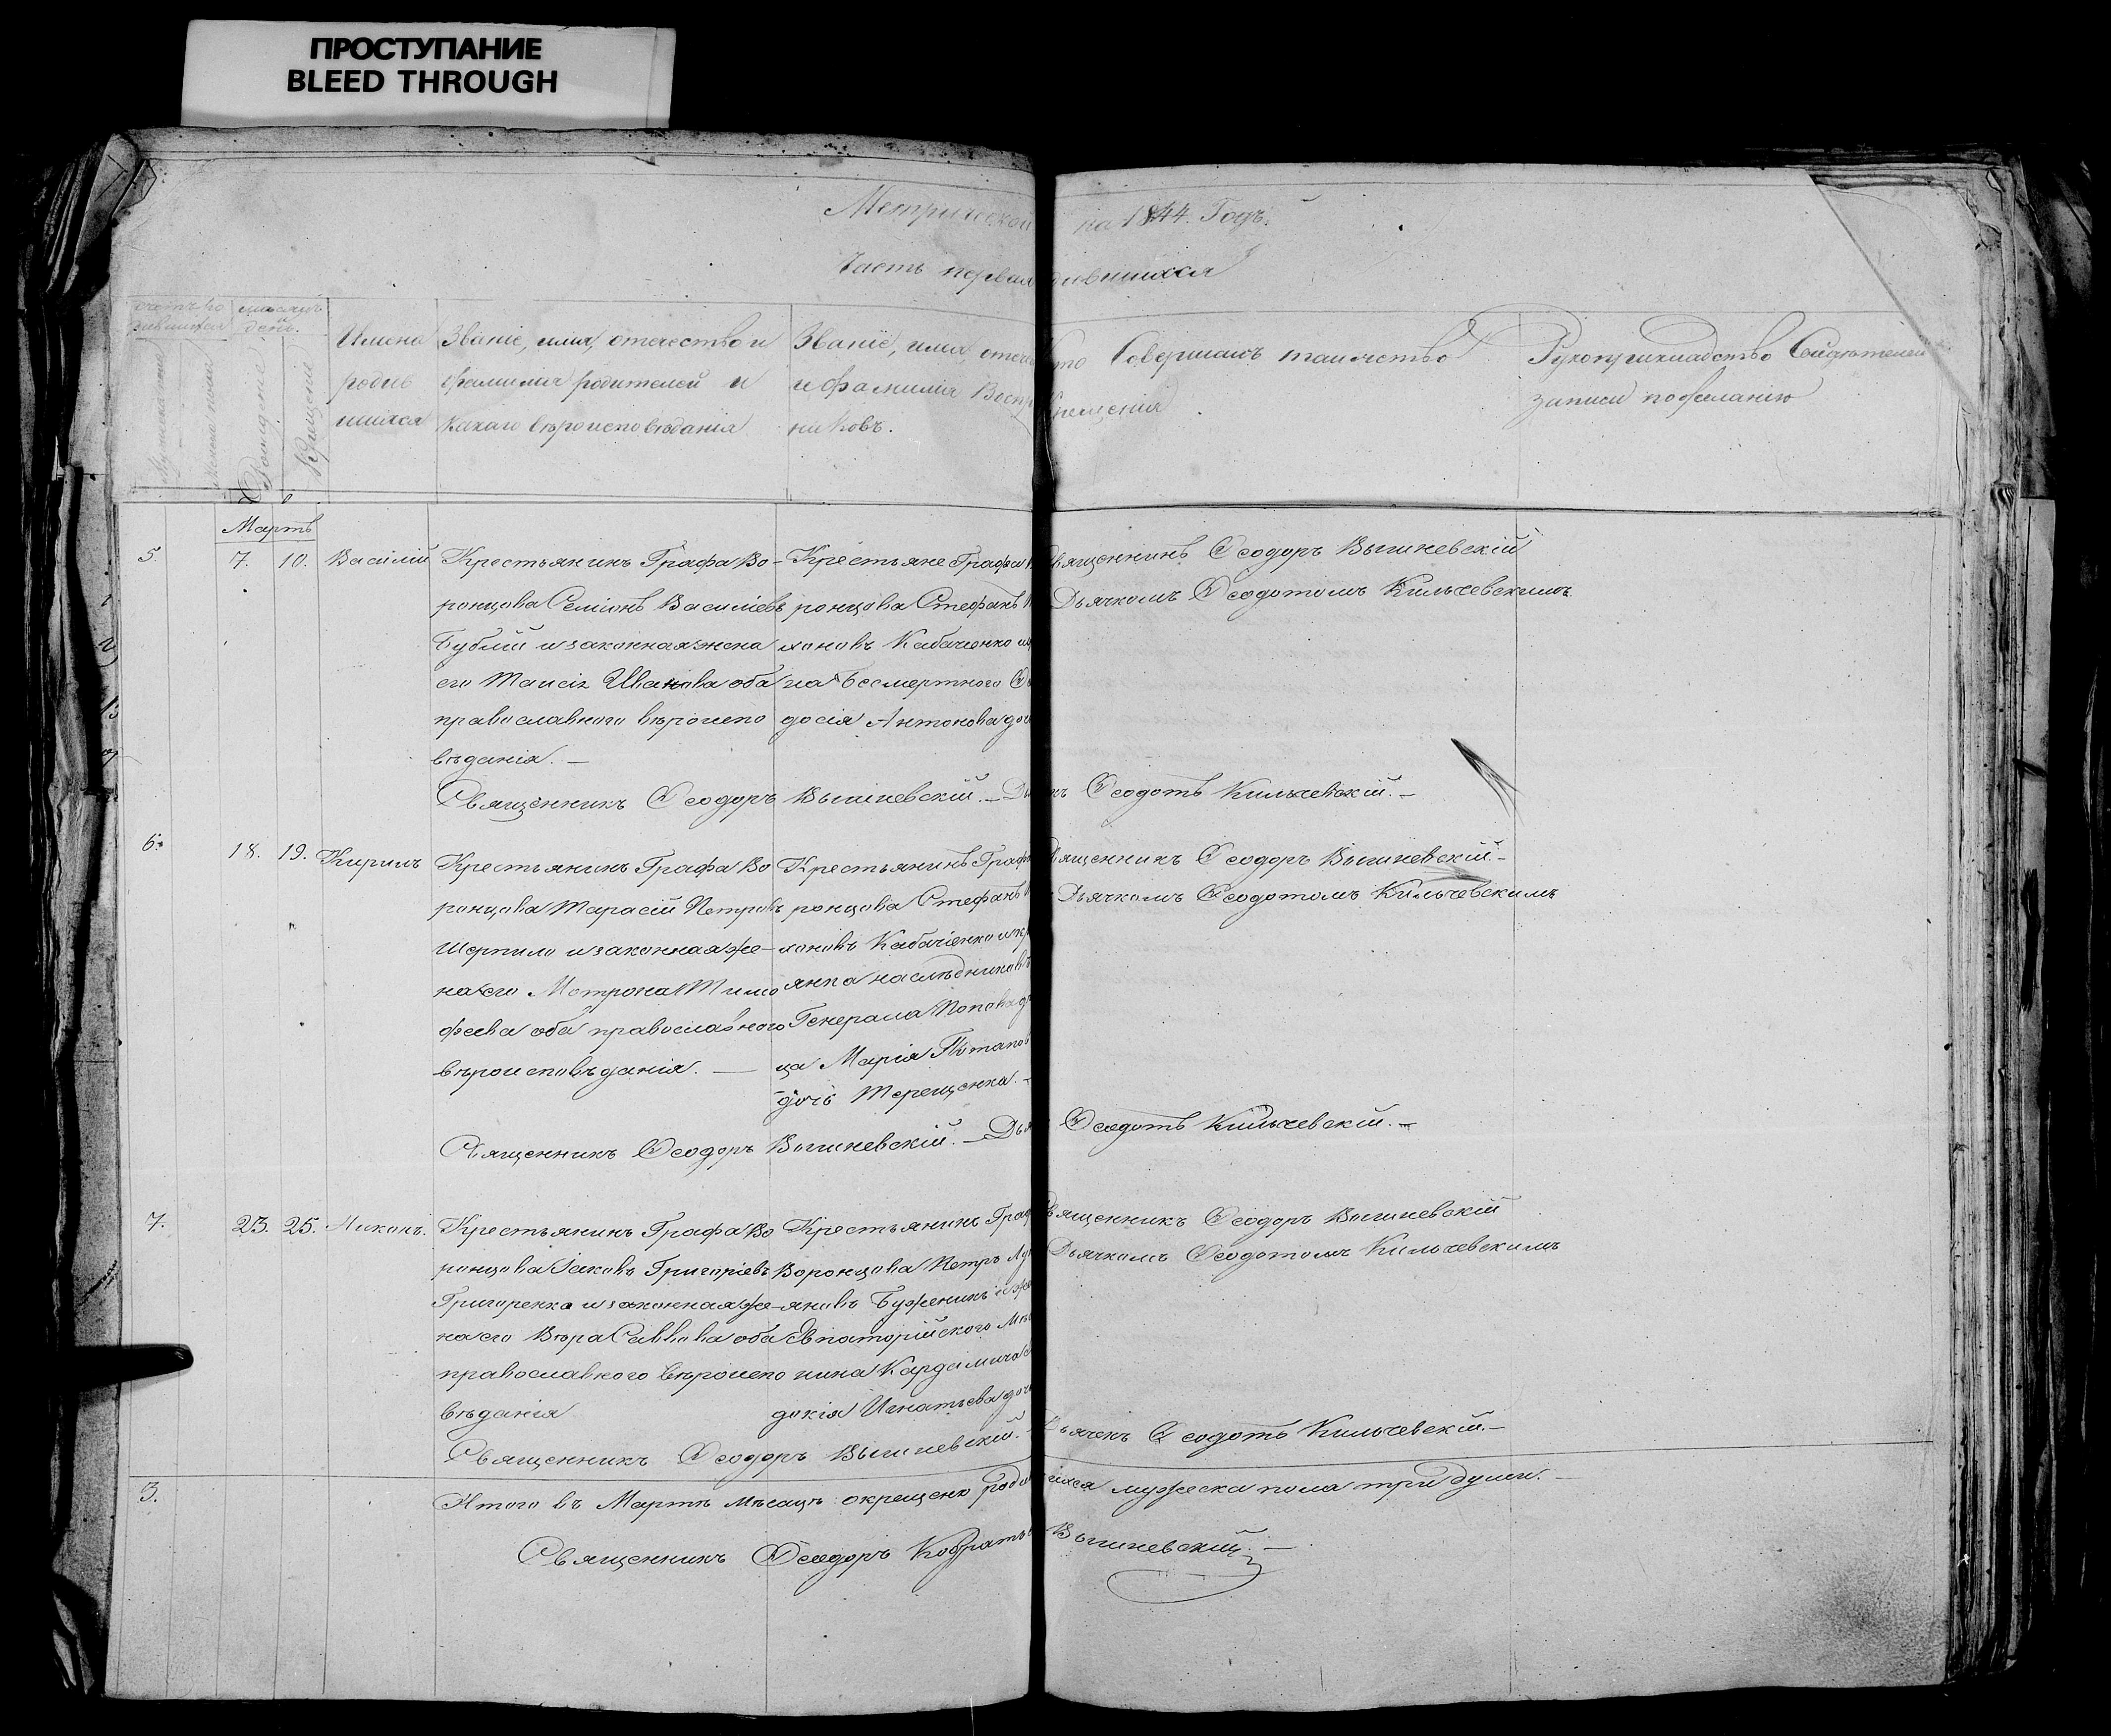 ПРОСТУПАНИЕ
BLEED THROUGH
Метрической на 1844. Годъ.
Часть первая
Имена
родив
шихся
Званіе, имя, отечество и
фамилія родителей и
какаго вѣроисповѣданія
Званіе, имя, отече
и фамилія Воспр
никовъ.
Совершалъ таинство
крещенія
Рукоприкладство Свидетелей
записи по желанію
Мартъ
5. 7. 10. Василій
Крестьянинъ Графа Во-
ронцова Семіонъ Василіевъ
Бублій и законная жена
его Таисія Иванова оба
православного вѣроиспо
вѣданія. —
Крестьяне Графа
ронцова Стефанъ
хоновъ Кабаченко
на Безсмертного
досія Антонова доч
Священникъ Ѳеодоръ Вышневскій
Дьячкомъ Ѳеодотомъ Кильчевскимъ
Священникъ Ѳеодоръ Вышневскій. — Ѳеодотъ Кильчевскій. —
6. 18. 19. Кирилъ
Крестьянинъ Графа Во
ронцова Тарасій Петровъ
Шерпило и законная же-
на его Матрона Тимо
феева оба православного
вѣроисповѣданія. —
Крестьянинъ Граф
ронцова Стефанъ
хоновъ Кабаченко и кр
янка наслѣдниковъ
Генерала Попова д
ца Марія Потапов
дочь Терещенка. —
Священникъ Ѳеодоръ Вышневскій —
Дьячкомъ Ѳеодотомъ Кильчевскимъ
Священникъ Ѳеодоръ Вышневскій. — Ѳеодотъ Кильчевскій. —
7. 23. 25. Никонъ.
Крестьянинъ Графа Во
ронцова Іаковъ Григоріевъ
Григоренко и законная же-
на его Вѣра Саввова оба
православного вѣроиспо
вѣданія
Крестьянинъ Граф
Воронцова Петръ
яновъ Буженикъ и же
Евпаторійского Мѣ
нина Кардамича
докія Игнатьева доч
Священникъ Ѳеодоръ Вышневскій
Дьячкомъ Ѳеодотомъ Кильчевскимъ
Священникъ Ѳеодоръ Вышневскій. Дьячекъ Ѳеодотъ Кильчевскій. —
3. Итого въ Мартѣ мѣсяцѣ окрещено роди шихся мужеска пола три души. —
Священникъ Ѳеодоръ Вышневскій. —